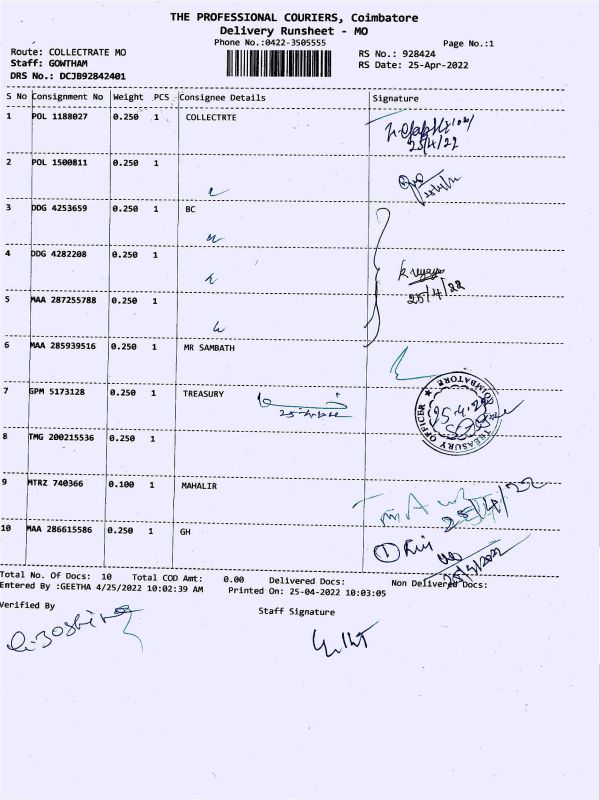 THE PROFESSIONAL COURIERS, Coimbatore
Delivery Runsheet - MO
Phone No.:0422-3505555
Page No.:1
Route: COLLECTRATE MO
RS No.: 928424
Staff: GOWTHAM
RS Date: 25-Apr-2022
DRS No.: DCJB92842401
S No Consignment No Weight PCS Consignee Details Signature
1 POL 1188027 0.250 1 COLLECTRTE
25/4/22
2 POL 1500811 0.250 1
3 DDG 4253659 0.250 1 BC
4 DDG 4282208 0.250 1
25/4/22
5 MAA 287255788 0.250 1
6 MAA 285939516 0.250 1 MR SAMBATH
7 GPM 5173128 0.250 1 TREASURY
TREASURY OFFICER ★ COIMBATORE
25.4.22
8 TMG 200215536 0.250 1
9 MTRZ 740366 0.100 1 MAHALIR
25/4/22
10 MAA 286615586 0.250 1 GH
25/4/2022
Total No. Of Docs: 10 Total COD Amt: 0.00 Delivered Docs: Non Delivered Docs:
Entered By :GEETHA 4/25/2022 10:02:39 AM Printed On: 25-04-2022 10:03:05
Verified By
Staff Signature